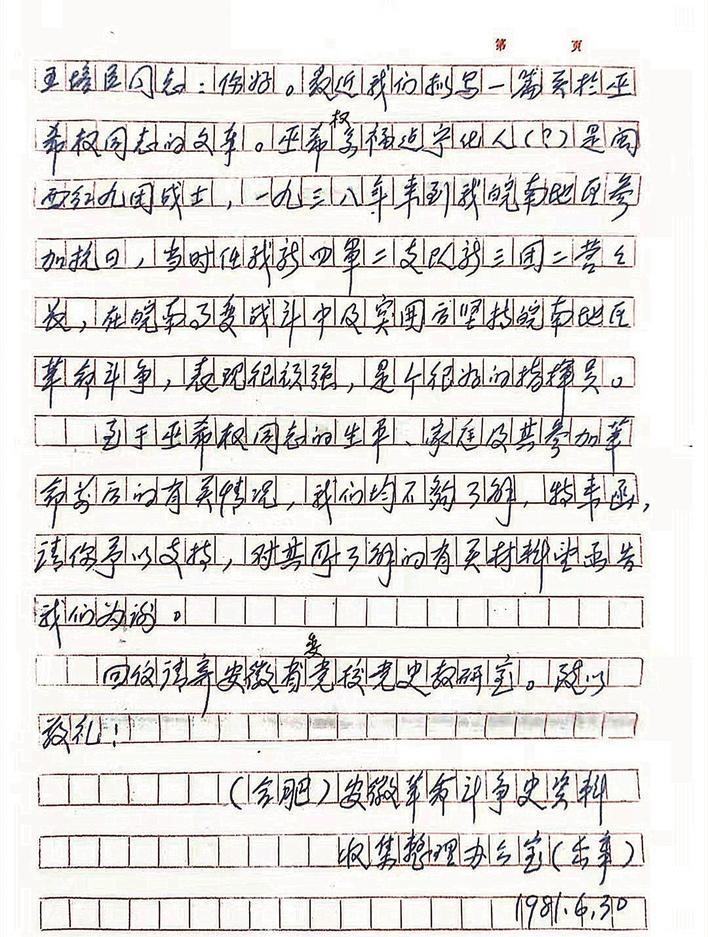 第 页
同志：你好。最近我们拟写一篇关於巫
希权同志的文章。巫希权系福建宁化人（？）是闽
西红九团战士，一九三八年来到我皖南地区参
加抗日，当时任我新四军二支队新三团二营营
长，在皖南事变战斗中及突围后坚持皖南地区
革命斗争，表现很顽强，是个很好的指挥员。
至于巫希权同志的生平、家庭及其参加革
命前后的有关情况，我们均不够了解，特来函，
请你予以支持，对其所了解的有关材料望函告
我们为谢。
回信请寄安徽省委党校党史教研室。致以
敬礼！
（合肥）安徽革命斗争史资料
收集整理办公室（章）
1981.6.30